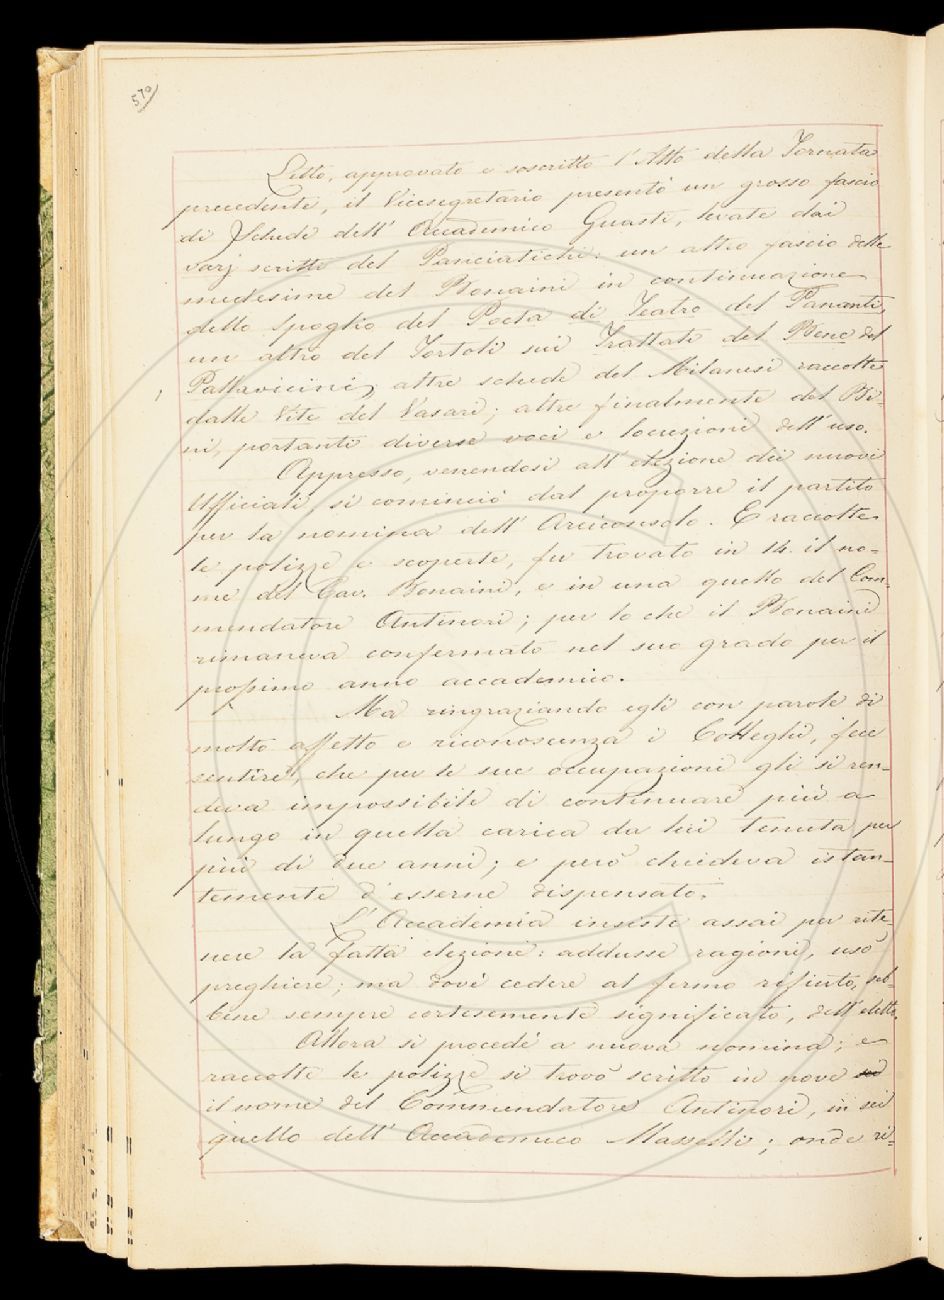 570
Letto, approvato e soscritto l'Atto della Tornata
precedente, il Vicesegretario presentò un grosso fascio
di Schede dell'Accademico Guasti, levate dai
varj scritti del Panciatichi: un altro fascio delle
medesime del Bonaini in continuazione
dello Spoglio del Poeta di Teatro del Pananti,
un altro del Tortoli sui Trattati del Bene del
Pallavicini, altre schede del Milanesi raccolte
dalle Vite del Vasari; altre finalmente del Bi-
ni, portanti diverse voci e locuzioni dell'uso.
Appresso, venendosi all'elezione dei nuovi
Ufficiali, si cominciò dal proporre il partito
per la nomina dell'Arciconsolo. E raccolte
le polizze e scoperte, fu trovato in 14. il no-
me del Cav. Bonaini, e in una quello del Com-
mendatore Antinori; per lo che il Bonaini
rimaneva confermato nel suo grado per il
prossimo anno accademico.
Ma ringraziando egli con parole di
molto affetto e riconoscenza i Colleghi, fece
sentire, che per le sue occupazioni gli si ren-
deva impossibile di continuare più a
lungo in quella carica da lui tenuta per
più di due anni; e però chiedeva istan-
temente d'esserne dispensato.
L'Accademia insisté assai per rite-
nere la fatta elezione: addusse ragioni, usò
preghiere; ma dové cedere al fermo rifiuto, seb-
bene sempre cortesemente significato, dell'eletto.
Allora si procedé a nuova nomina; e
raccolte le polizze si trovò scritto in nove
il nome del Commendatore Antinori, in sei
quello dell'Accademico Masselli; onde ri-